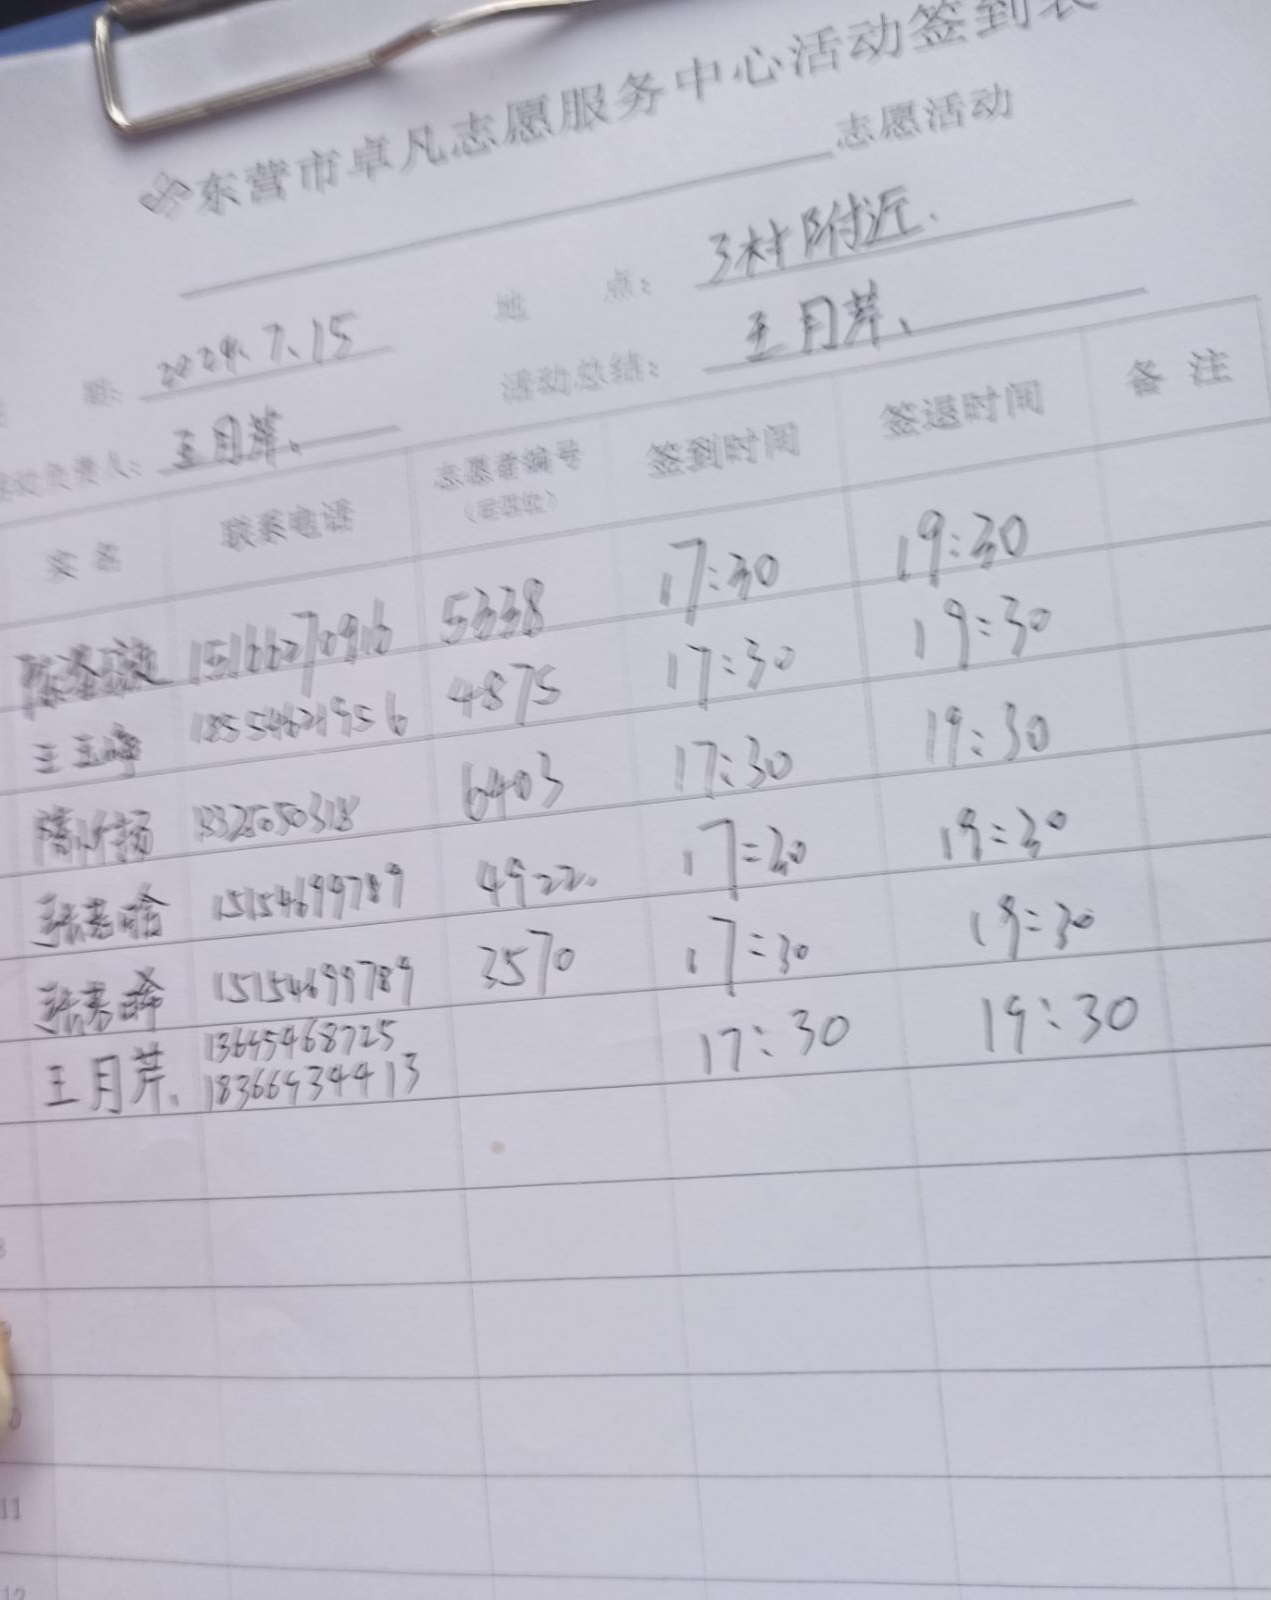 东营市卓凡志愿服务中心活动签到表
志愿活动
期: 2024.7.15 地 点: 3村附近.
活动负责人: 王月芹、 活动总结: 王月芹、
实名 联系电话 志愿者编号 签到时间 签退时间 备注
15166270916 5338 17:30 19:30
王玉峰 18554621956 4875 17:30 19:30
6403 17:30 19:30
15154699789 4922. 17:30 19:30
15154699789 3570 17:30 19:30
13645468725
王月芹、 18366934413 17:30 19:30
11
12